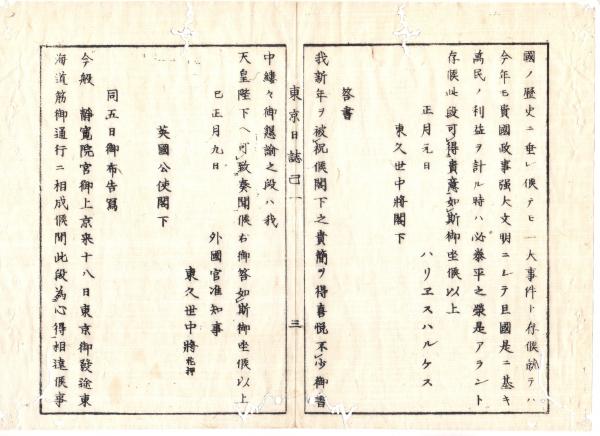 國ノ歴史ニ垂レ候テモ一大事件ト存候就テハ
今年モ貴國政事强大文明ニシテ且國是ニ基キ
萬民ノ利益ヲ計ル時ハ必泰平之榮是アラント
存候此段可得貴意如斯御坐候以上
正月元日
ハリヱスハルケス
東久世中將閣下
答書
我新年ヲ被祝候閣下之貴簡ヲ得喜悦不少御書
東京日誌己一
三
中縷々御懇諭之段ハ我
天皇陛下ヘ可致奏聞候右御答如斯御坐候以上
巳正月九日
外國官准知事
東久世中將花押
英國公使閣下
同五日御布告寫
今般靜寬院宮御上京来十八日東京御發途東
海道筋御通行ニ相成候間此段為心得相達候事